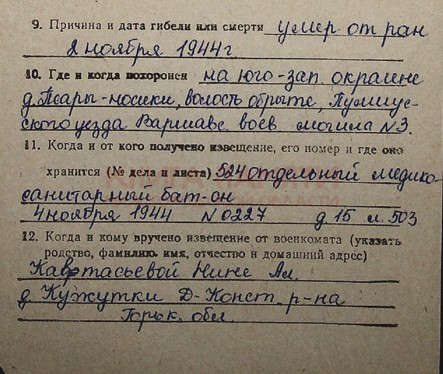 9. Причина и дата гибели или смерти умер от ран
2 ноября 1944 г
10. Где и когда похоронен на юго-зап. окраине
д. Псары-носики, волость обрыте, Пулшус-
ского уезда Варшавс. воев могила №3.
11. Когда и от кого получено извещение, его номер и где оно
хранится (№ дела и листа) 524 отдельный медико-
санитарный бат-он
4 ноября 1944 N 0227 д. 15 л. 503
12. Когда и кому вручено извещение от военкомата (указать
родство, фамилию, имя, отчество и домашний адрес)
Нине Ал.
д. Кужутки Д-Конст. р-на
Горьк. обл.